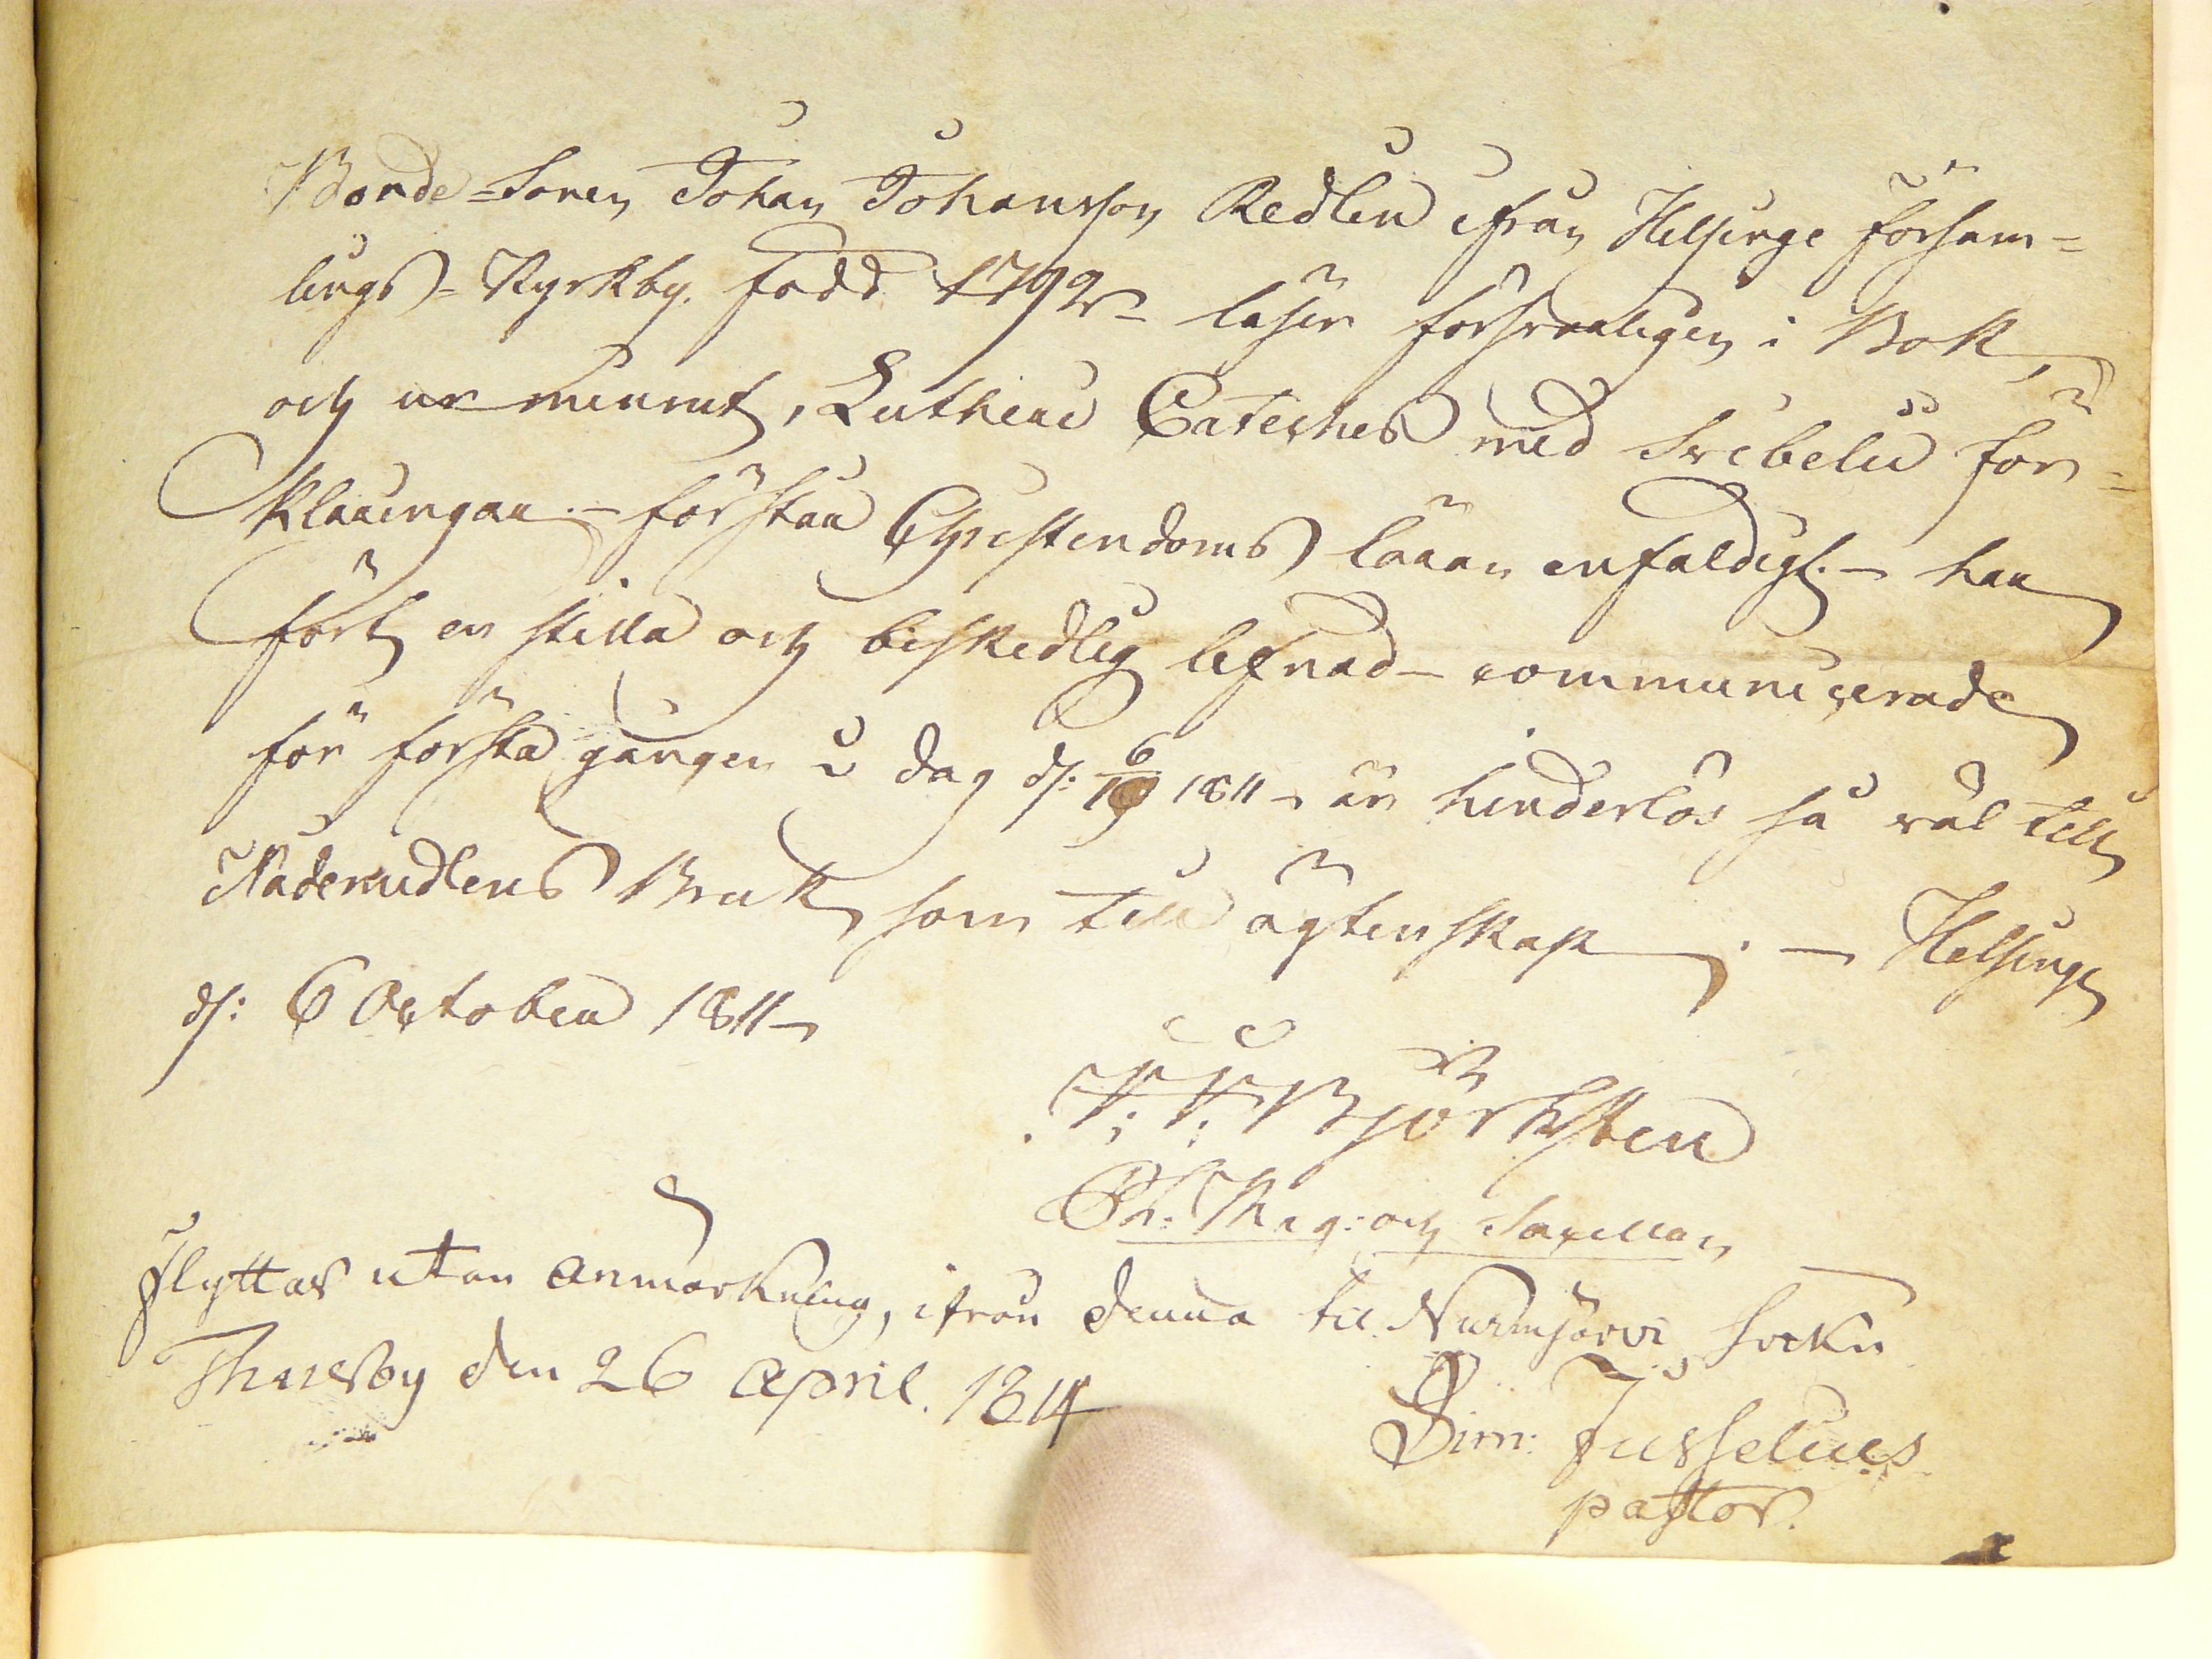 Bonde-Sonen Johan Johansson Redlin ifrån Helsinge försam=
lings-Kyrkby. född 1792 – läser försvarligen i Bok,
och ur minnet, Lutheri Cateches med Svebelii för=
klaringar. – förstår Christendoms läran enfaldigt. – har
fört en stilla och beskedlig lefnad – communicerade
för första gången i dag d: 6/10 1811 – är hinderlös så väl till
Nådemedlens Bruk som till ägtenskap. – Helsinge
d: 6 October 1811 –
Björksten
Ph: Mag: och Sacellan
Flyttar utan anmärkning, ifrån denna til Nurmijärvi Sockn
Thusby den 26 April. 1814
Sim: Jusselius
pastor.